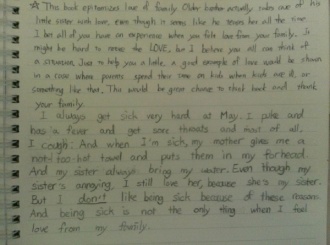 This book epitomizes love of family. Older brother actually takes care of his
little sister with love, even though it seems like he teases her all the time.
I bet all of you have an experience when you felt love from your family. It
might be hard to notice the LOVE, but I believe you all can think of
a situation. Just to help you a little, a good example of love would be shown
in a case where parents spend their time on kids when kids are ill, or
something like that. This would be great chance to look back and thank
your family.
I always get sick very hard at May. I puke and
has a fever and get sore throats and most of all,
I cough. And when I'm sick, my mother gives me a
not-too-hot towel and puts them in my forhead.
And my sister always bring my water. Even though my
sister's annoying, I still love her, because she's my sister.
But I don't like being sick because of these reason.
And being sick is not the only thing when I feel
love from my family.